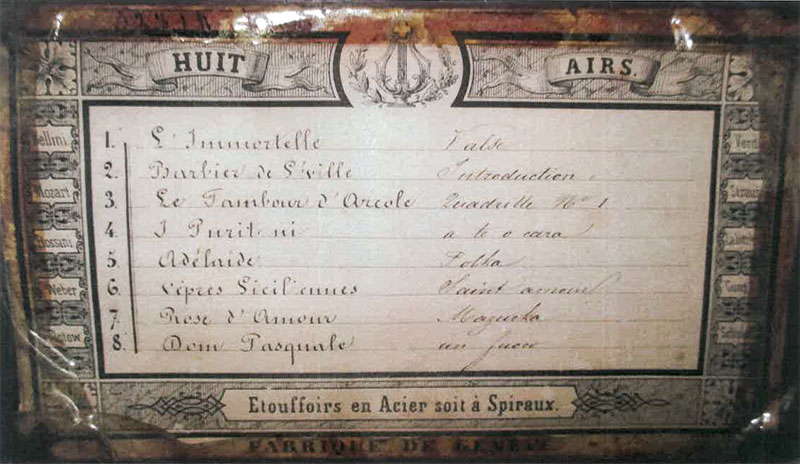 HUIT AIRS.
1. L'Immortelle Valse
2. Barbier de S'ville Introduction.
3. Le Tambour d'Arcole Quadrille No 1
4. I Puritani a te o cara
5. Adélaide Polka
6. Vêpres Siciliennes Saint amour
7. Rose d'Amour Mazurka
8. Dom Pasquale un fuoco
Bellini
Mozart
Rossini
Weber
Verdi
Strauss
Etouffoirs en Acier soit à Spiraux.
FABRIQUE DE GENEVE